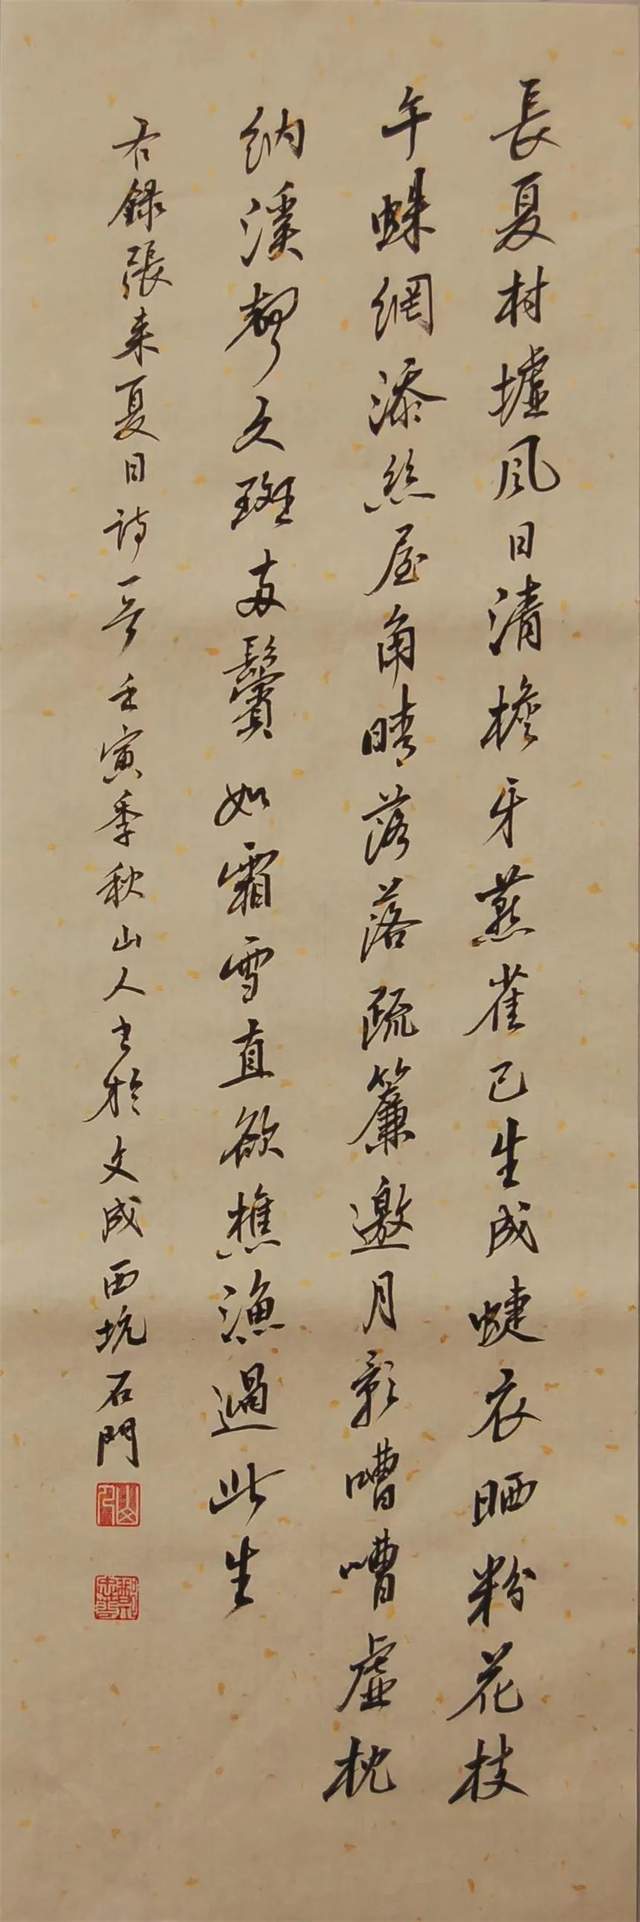 長夏村墟風日清檐牙燕雀已生成蝶衣晒粉花枝
午蛛網添絲屋角晴落落疏簾邀月影嘈嘈虛枕
納溪聲久斑兩鬢如霜雪直欲樵漁過此生
右錄張耒夏日詩一首壬寅季秋山人書於文成西坑石門